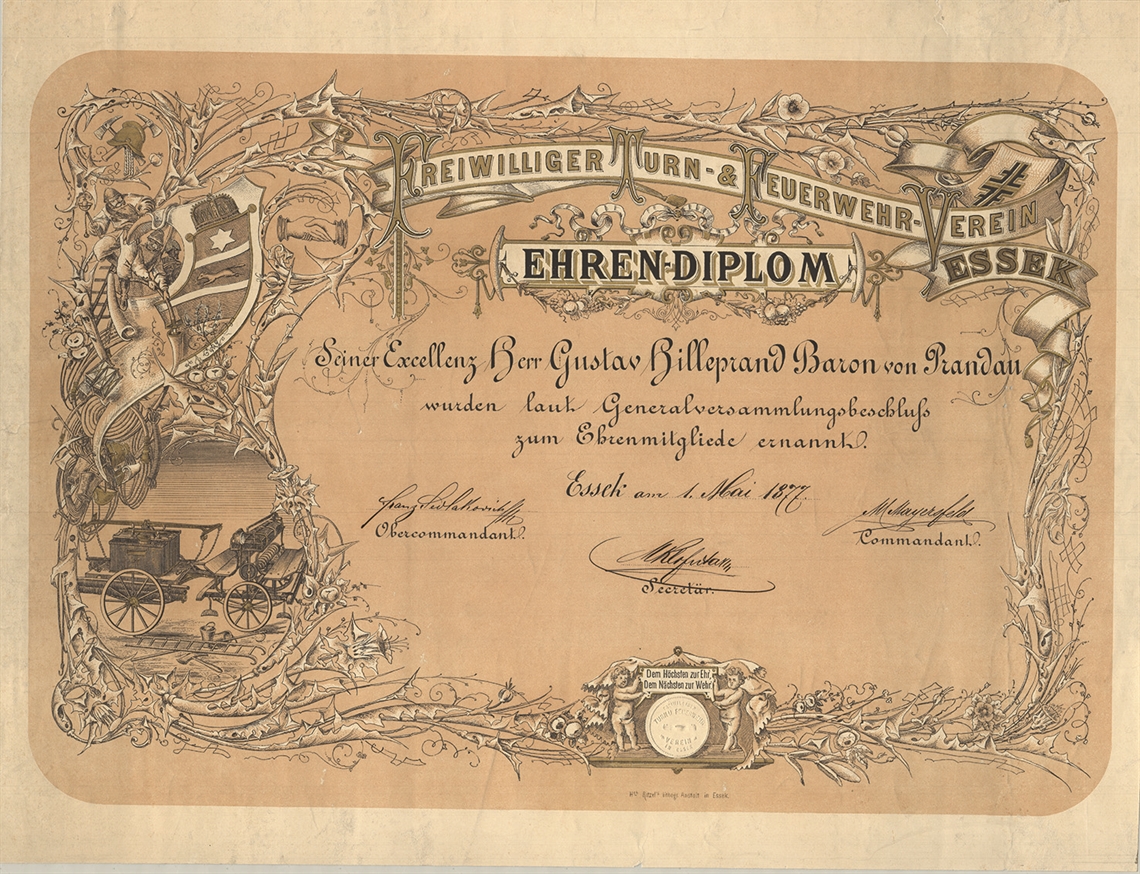 FREIWILLIGER TURN- & FEUERWEHR-VEREIN
ESSEK
EHREN-DIPLOM
Seiner Excellenz Herr Gustav Hilleprand Baron von Prandau
wurden laut Generalversammlungsbeschluß
zum Ehrenmitgliede ernannt.
Essek am 1. Mai 1877.
Obercommandant.
M Mayersfeld
Commandant.
Secretär.
Dem Höchsten zur Ehr,
Dem Nächsten zur Wehr
VEREIN
Anstalt in Essek.